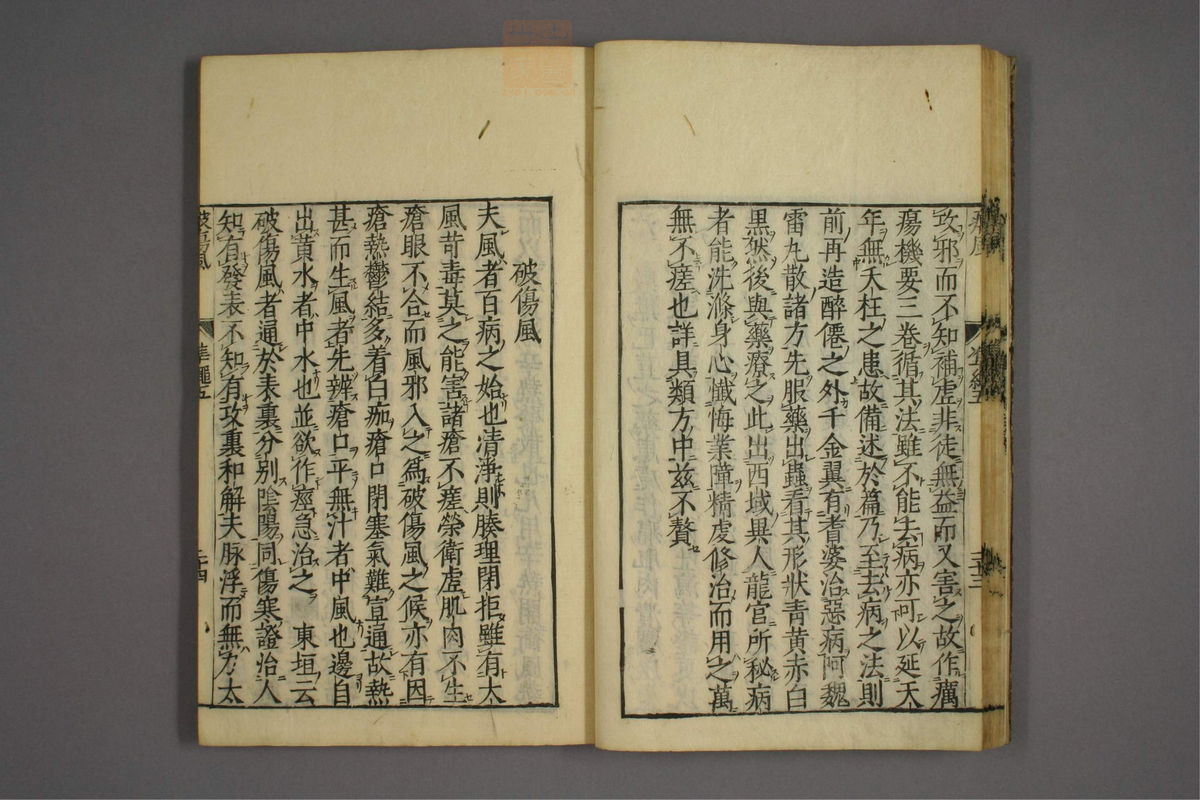 攻邪而不知補虛非徒無益而又害之故作癘
瘍機要三卷循其法雖不能去病亦可以延天
年無夭枉之患故備述於篇乃至去病之法則
前再造醉僊之外千金翼有耆婆治惡病阿魏
雷丸散諸方先服藥出蟲看其形狀青黄赤白
黒然後與藥療之此出西域異人龍宫所秘病
者能洗滌身心懺悔業障精虔修治而用之萬
無不瘥也詳具類方中兹不贅
破傷風
夫風者百病之始也清淨則腠理閉拒雖有太
風苛毒莫之能害諸瘡不瘥榮衛虛肌肉不生
瘡眼不合而風邪入之爲破傷風之候亦有因
瘡熱鬱結多着白痂瘡口閉塞氣難宣通故熱
甚而生風者先辨瘡口平無汁者中風也邊自
出黄水者中水也並欲作痙急治之 東垣云
破傷風者通於表裏分别陰陽同傷寒證治人
知有發表不知有攻裏和解夫脉浮而無力太
破傷風 準繩五 二十四